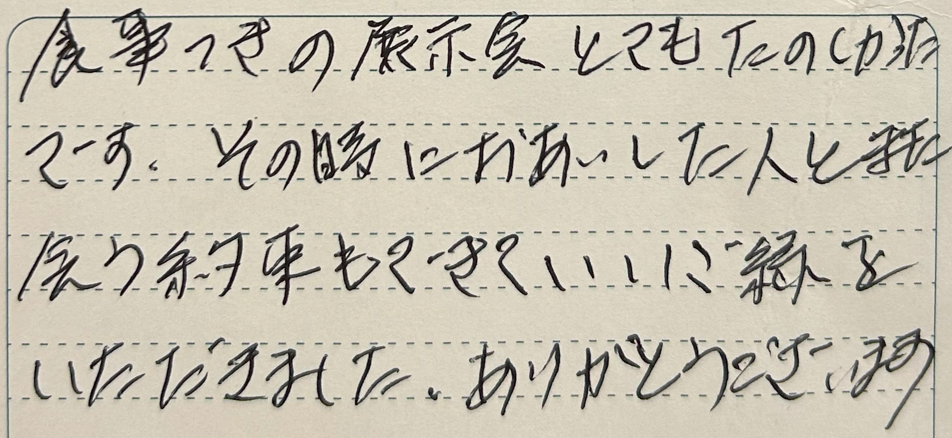 食事つきの展示会とてもたのしかった
です。その時におあいした人とまた
会う約束もできていいご縁を
いただきました。ありがとうございます